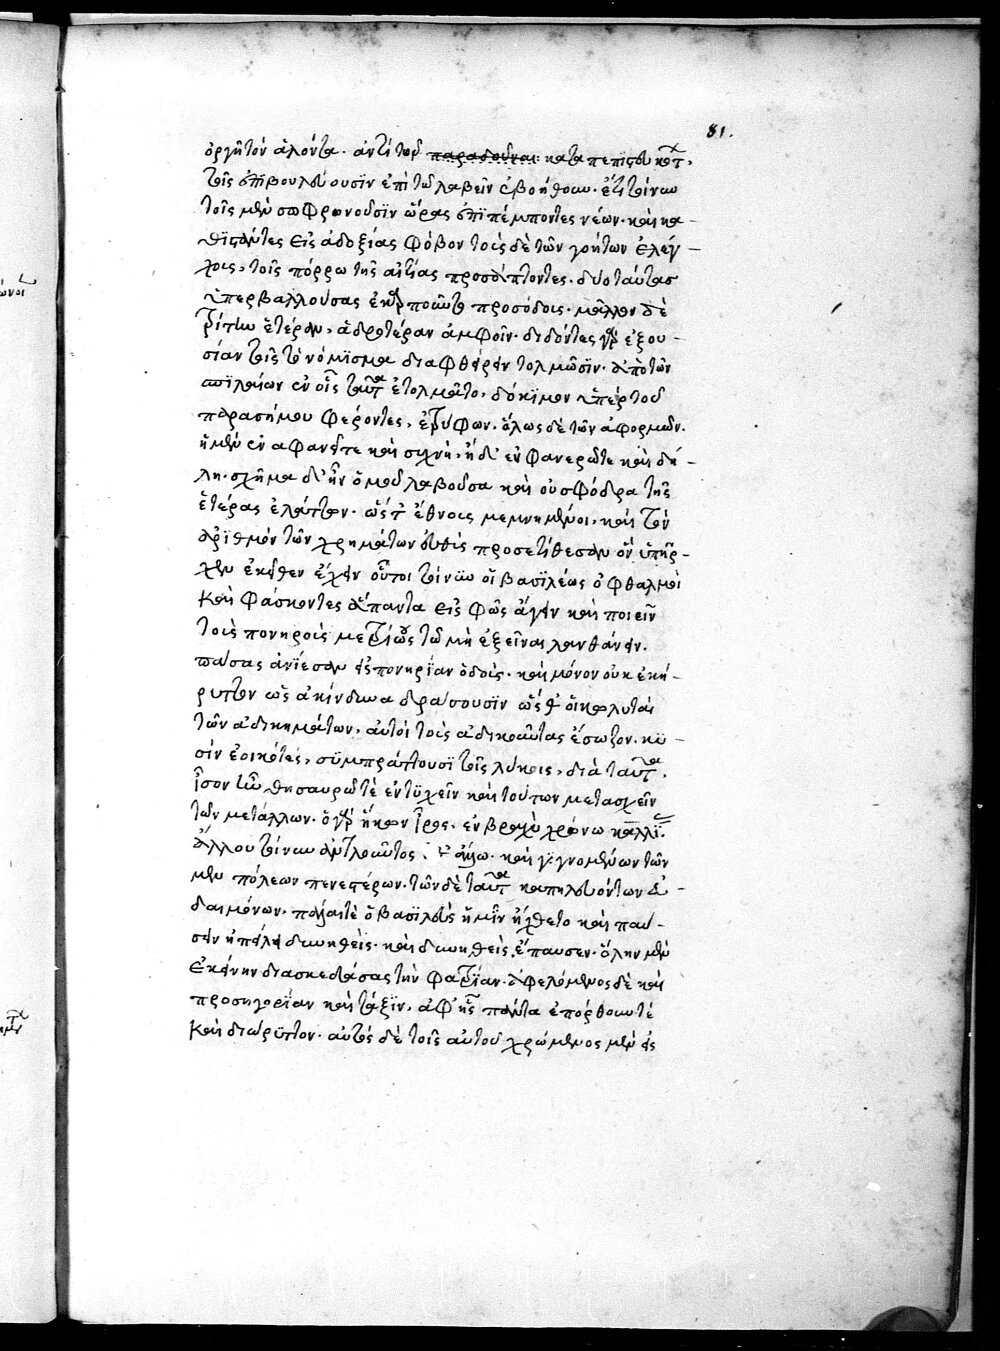 81.
ὀργῆ τὸν ἁλόντα. ἀντὶ τοῦ παραδοῦναι καταπεπίστευκότα,
τοῖς ἐπιβουλεύουσϊν ἐπὶ τῶ λαβεῖν ἐβοήθουν. ἔτι τοίνυν
τοῖς μὲν σωφρονοῦσϊν ὥρας ἐπϊπέμποντες νέων. καὶ κα-
θϊστάντες εἰς ἀδοξίας φόβον τοὺς δὲ τῶν γοήτων ἐλέγ-
χοις, τοῖς πόρρω τῆς αἰτίας προσάπτοντες. δύο ταύτας
ὑπερβαλλούσας ἐκαρποῦντο προσόδους. μᾶλλον δὲ
τρίτην ἑτέραν, ἁδροτέραν ἀμφοῖν. διδόντες γὰρ ἐξου-
σίαν τοῖς τὸ νόμϊσμα διαφθείρειν τολμῶσϊν. ἀπὸ τῶν
σπηλαίων ἐν οἷς ταῦτα ἐτολμᾶτο, δόκιμον ὑπὲρ τοῦ
παρασήμου φέροντες, ἐτρύφων. ὅλως δὲ τῶν ἀφορμῶν.
ἡ μὲν ἐν ἀφανεῖ τε καὶ σιγῆ, ἡ δ' ἐν φανερῶ τε καὶ δή-
λη. σχῆμα δ' ἣν ὁμοῦ λαβοῦσα καὶ οὐ σφόδρα τῆς
ἑτέρας ἐλάττων. ὥστε ἔθνους μεμνημένοι, καὶ τὸν
ἀρϊθμὸν τῶν χρημάτων εὐθὺς προσετίθεσαν ὃν ὑπῆρ-
χεν ἐκεῖθεν ἔχειν οὗτοι τοίνυν οἱ βασϊλέως ὀφθαλμοὶ
καὶ φάσκοντες ἅπαντα εἰς φῶς ἄγειν καὶ ποιεῖν
τοὺς πονηροὺς μετρίους τῶ μὴ ἐξεῖναι λανθάνειν.
πάσας ἀνίεσαν εἰς πονηρίαν ὁδούς. καὶ μόνον οὐκ ἐκή-
ρυττον ὡς ἀκίνδυνα δράσουσϊν ὥσθ' οἱ κωλυταὶ
τῶν ἀδικημάτων, αὐτοὶ τοὺς ἀδικοῦντας ἔσωζον. κϋ-
σὶν ἐοικότες, σϋμπράττουσϊ τοῖς λύκοις, διὰ ταῦτα,
ἶσον ἦν θησαυρῶ τὲ ἐντϋχεῖν καὶ τούτων μετασχεῖν
τῶν μετάλλων. ὁ γὰρ ἥκων ἶρος. ἐν βραχεῖ χρόνω καλλί.
ἄλλου τοίνυν ἀντλοῦντος ἄνω. καὶ γιγνομένων τῶν
μὲν πόλεων πενεστέρων. τῶν δὲ ταῦτα καπηλευόντων εὐ-
δαιμόνων. πάλαι τὲ ὁ βασϊλεὺς ἡμῖν ἤχθετο καὶ παύ-
σειν ἠπείλει δυνηθείς. καὶ δυνηθεὶς ἔπαυσεν. ὅλην μὲν
ἐκείνην διασκεδάσας τὴν φατρίαν. ἀφελόμενος δὲ καὶ
προσηγορίαν καὶ τάξϊν, ἀφ' ἧς πάντα ἐπόρθουν τὲ
καὶ διώρυττον. αὐτὸς δὲ τοῖς αὑτοῦ χρώμενος μὲν εἰς